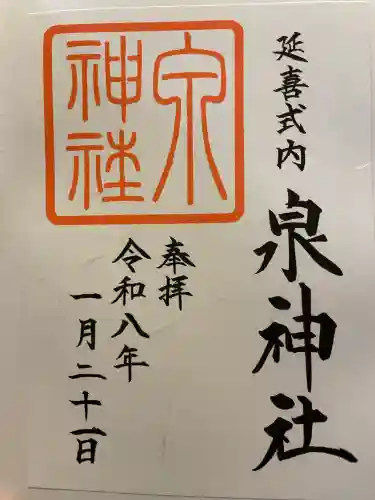 延喜式内
泉神社
奉拝
令和八年
一月二十一日
泉
神社